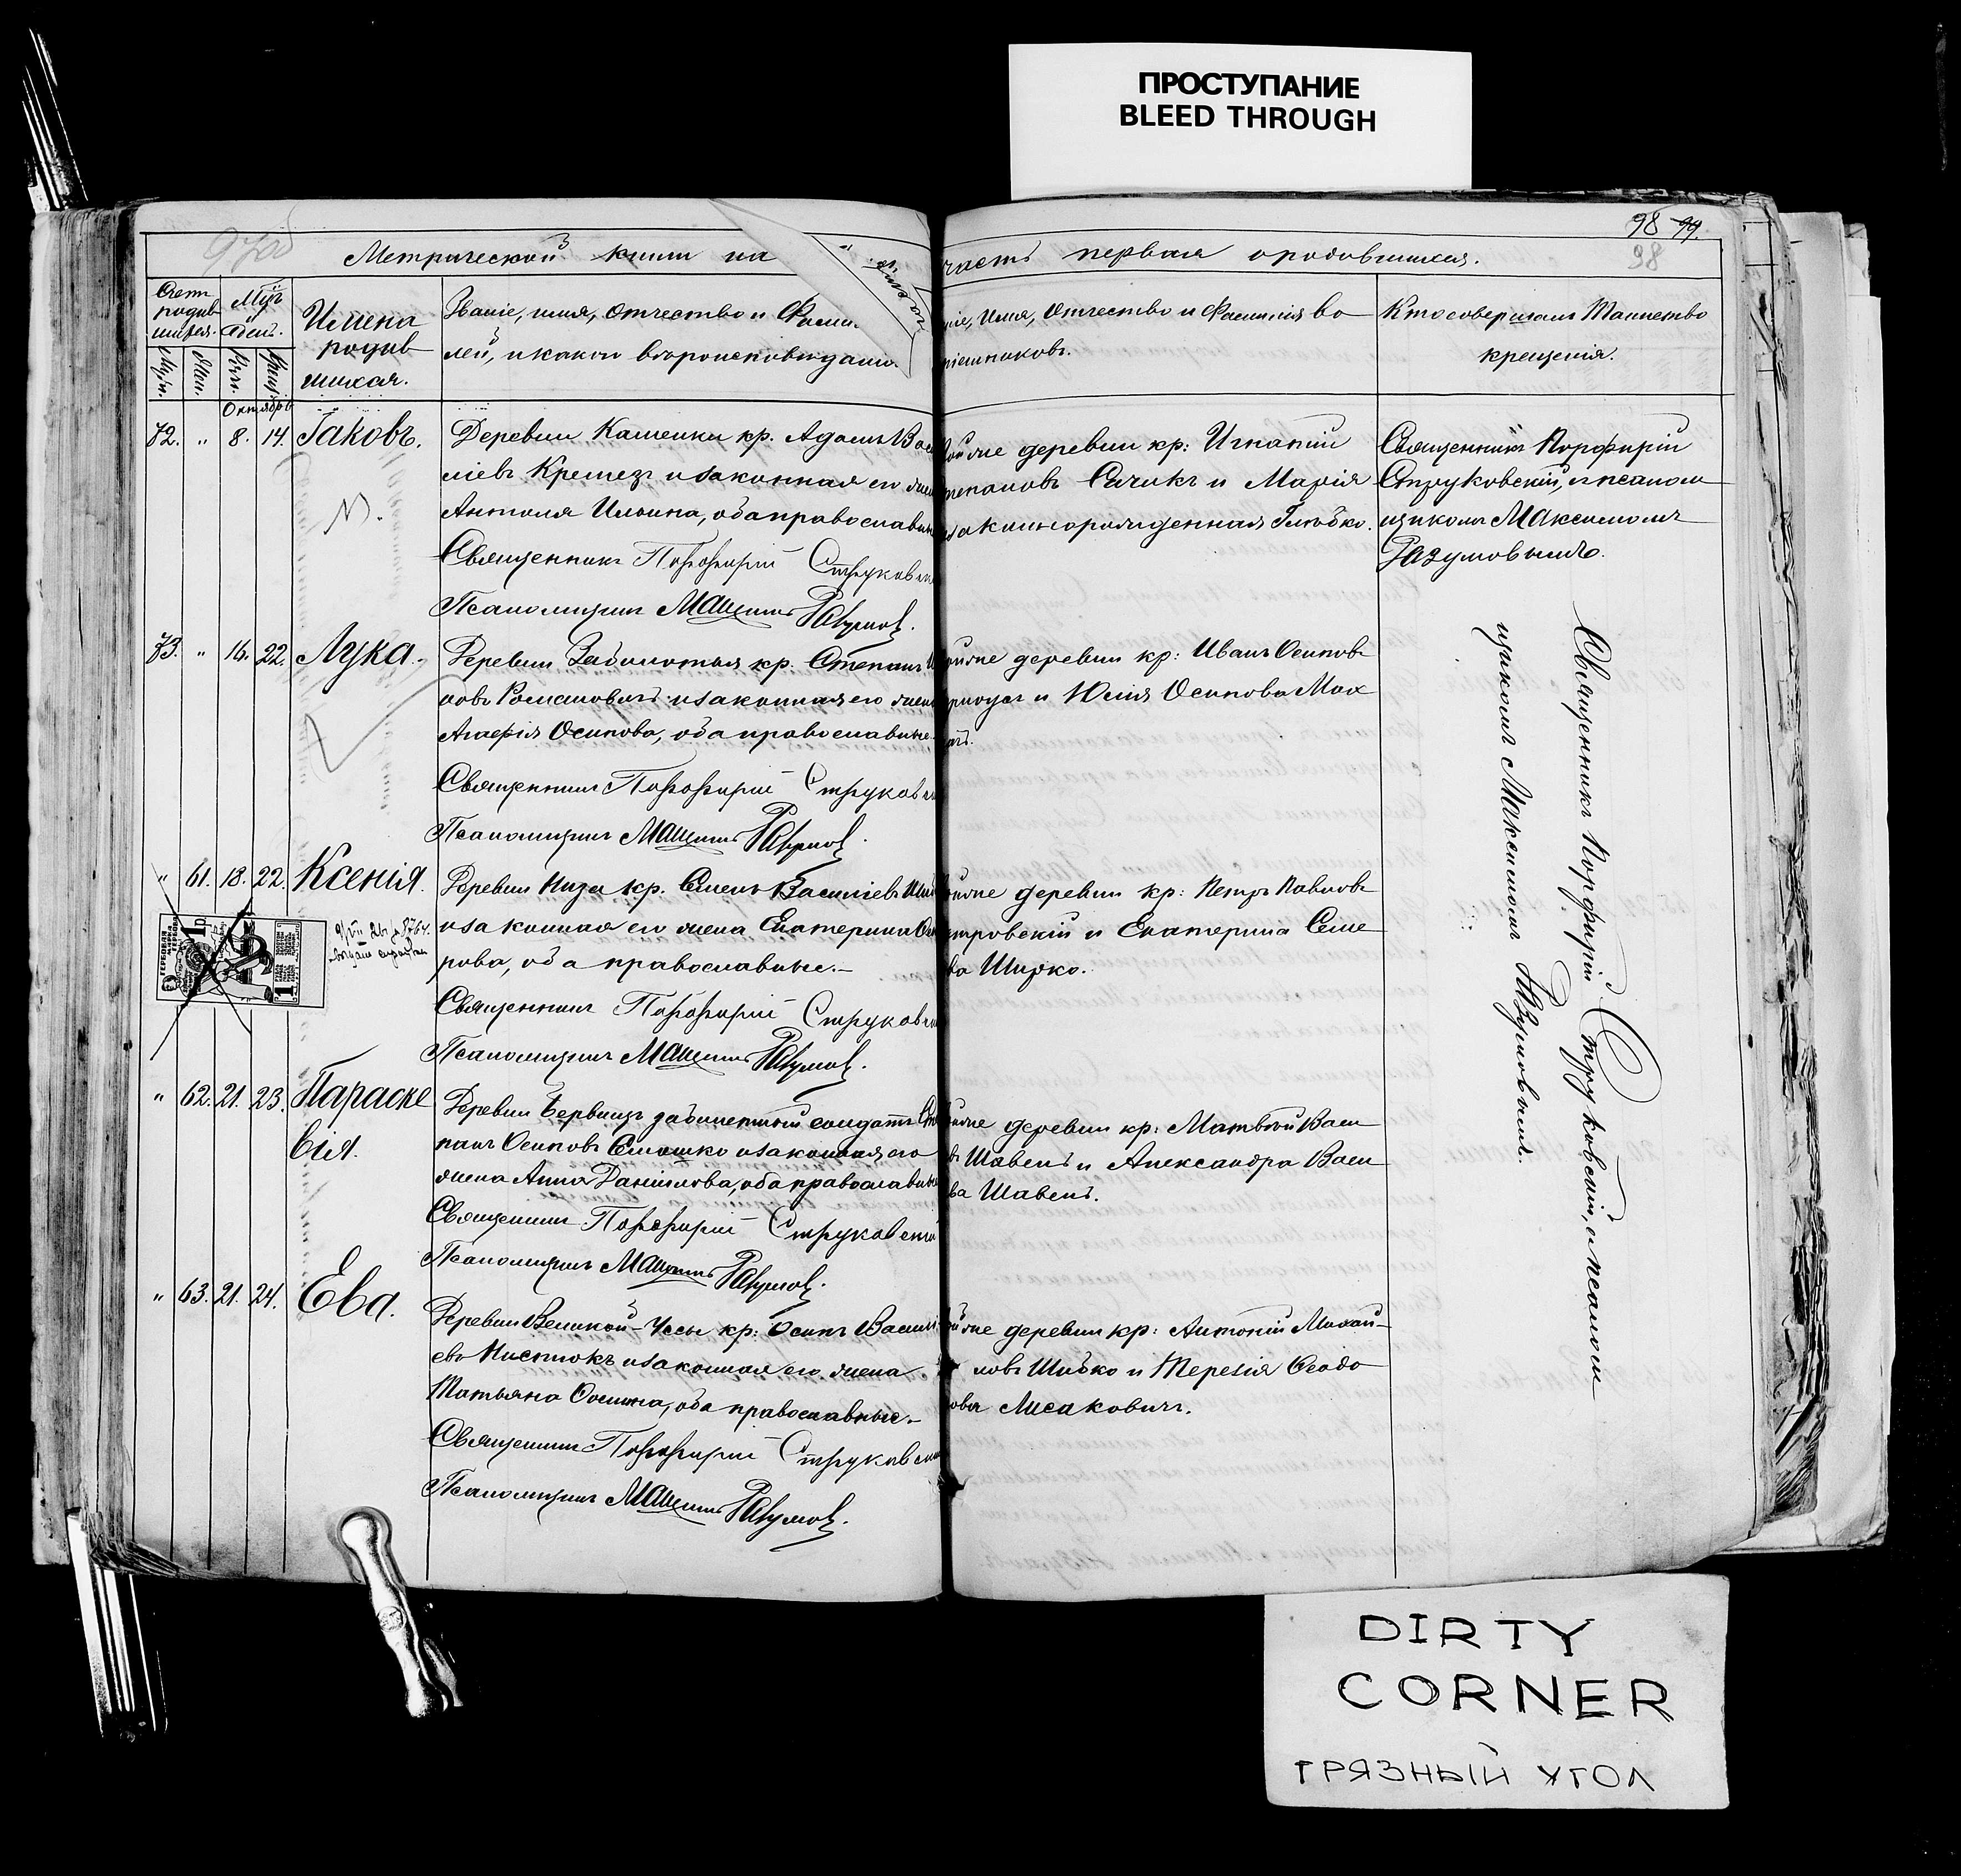 ПРОСТУПАНИЕ
BLEED THROUGH
98 99.
98
Метрической книги на
часть первая ородившихся.
Счетъ родив шихся.
Муж. Жен.
День.
Имена
родив
шихся.
Званіе, имя, отчество и Фами
лей, и какого вѣроисповѣданія.
Имя, Отчество и Фамилія во
пріемниковъ.
Кто совершалъ Таинство
крещенія.
Октябрь
72. " 8. 14. Іаковъ.
Деревни Каменки кр. Адамъ Васи
ліевъ Кремезъ и законная его жена
Антоля Ильина, оба православные
Священникъ Порфирій Струковскій
Псаломщикъ Максимъ Разумов.
той же деревни кр: Игнатій
Степановъ Сачикъ и Марія
Глюбко.
Священникъ Порфирій
Струковскій, съ псалом
щикомъ Максимомъ
Разумовымъ.
73. " 16. 22. Лука.
Деревни Заболотья кр. Степанъ
новъ Романовичъ и законная его жена
Агафія Осипова, оба православные
Священникъ Порфирій Струковскій
Псаломщикъ Максимъ Разумов.
той же деревни кр: Иванъ Осиповъ
и Юлія Осипова Мох
" 61. 18. 22. Ксенія.
Деревни Низа кр. Семенъ Василіевъ
и законная его жена Екатерина
рова, оба православные.-
Священникъ Порфирій Струковскій
Псаломщикъ Максимъ Разумов.
той же деревни кр: Петръ Павловъ
и Екатерина Семе
ва Ширко.
" 62. 21. 23. Параске
вія.
Деревни забилетный солдатъ Сте
панъ Осиповъ Сташко и законная его
жена Анна Даніилова, оба православные
Священникъ Порфирій Струковскій
Псаломщикъ Максимъ Разумов.
той же деревни кр: Матвѣй Васи
въ Шавель и Александра Васи
ва Шавель.
" 63. 21. 24. Ева.
Деревни Великой-Усы кр: Осипъ Василі
евъ Нистюкъ и законная его жена
Татьяна Осипова, оба православные.-
Священникъ Порфирій Струковскій
Псаломщикъ Максимъ Разумов.
той же деревни кр: Антоній Михай-
ловъ Шибко и Терезія Ѳеодо
ова Лисаковичъ.
Священникъ Порфирій Струковскій, съ псалом
щикомъ Максимомъ Разумовымъ.
DIRTY
CORNER
ГРЯЗНЫЙ УГОЛ